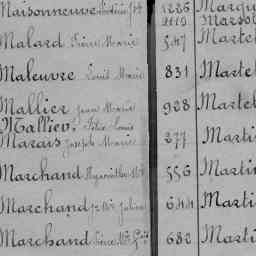 Maisonneuve 1226 Marqu
2119 Marsol
Malard Pierre Marie 547 Martel
Maleuvre Louis Marie 831 Martel
Mallier Jean Marie 928 Martel
Malliev, Félix Louis
Marais Joseph Marie 277 Marti
Marchand Hyacinthe Mie 556 Martin
Marchand Julien 644 Marti
Marchand Pierre 682 Marti